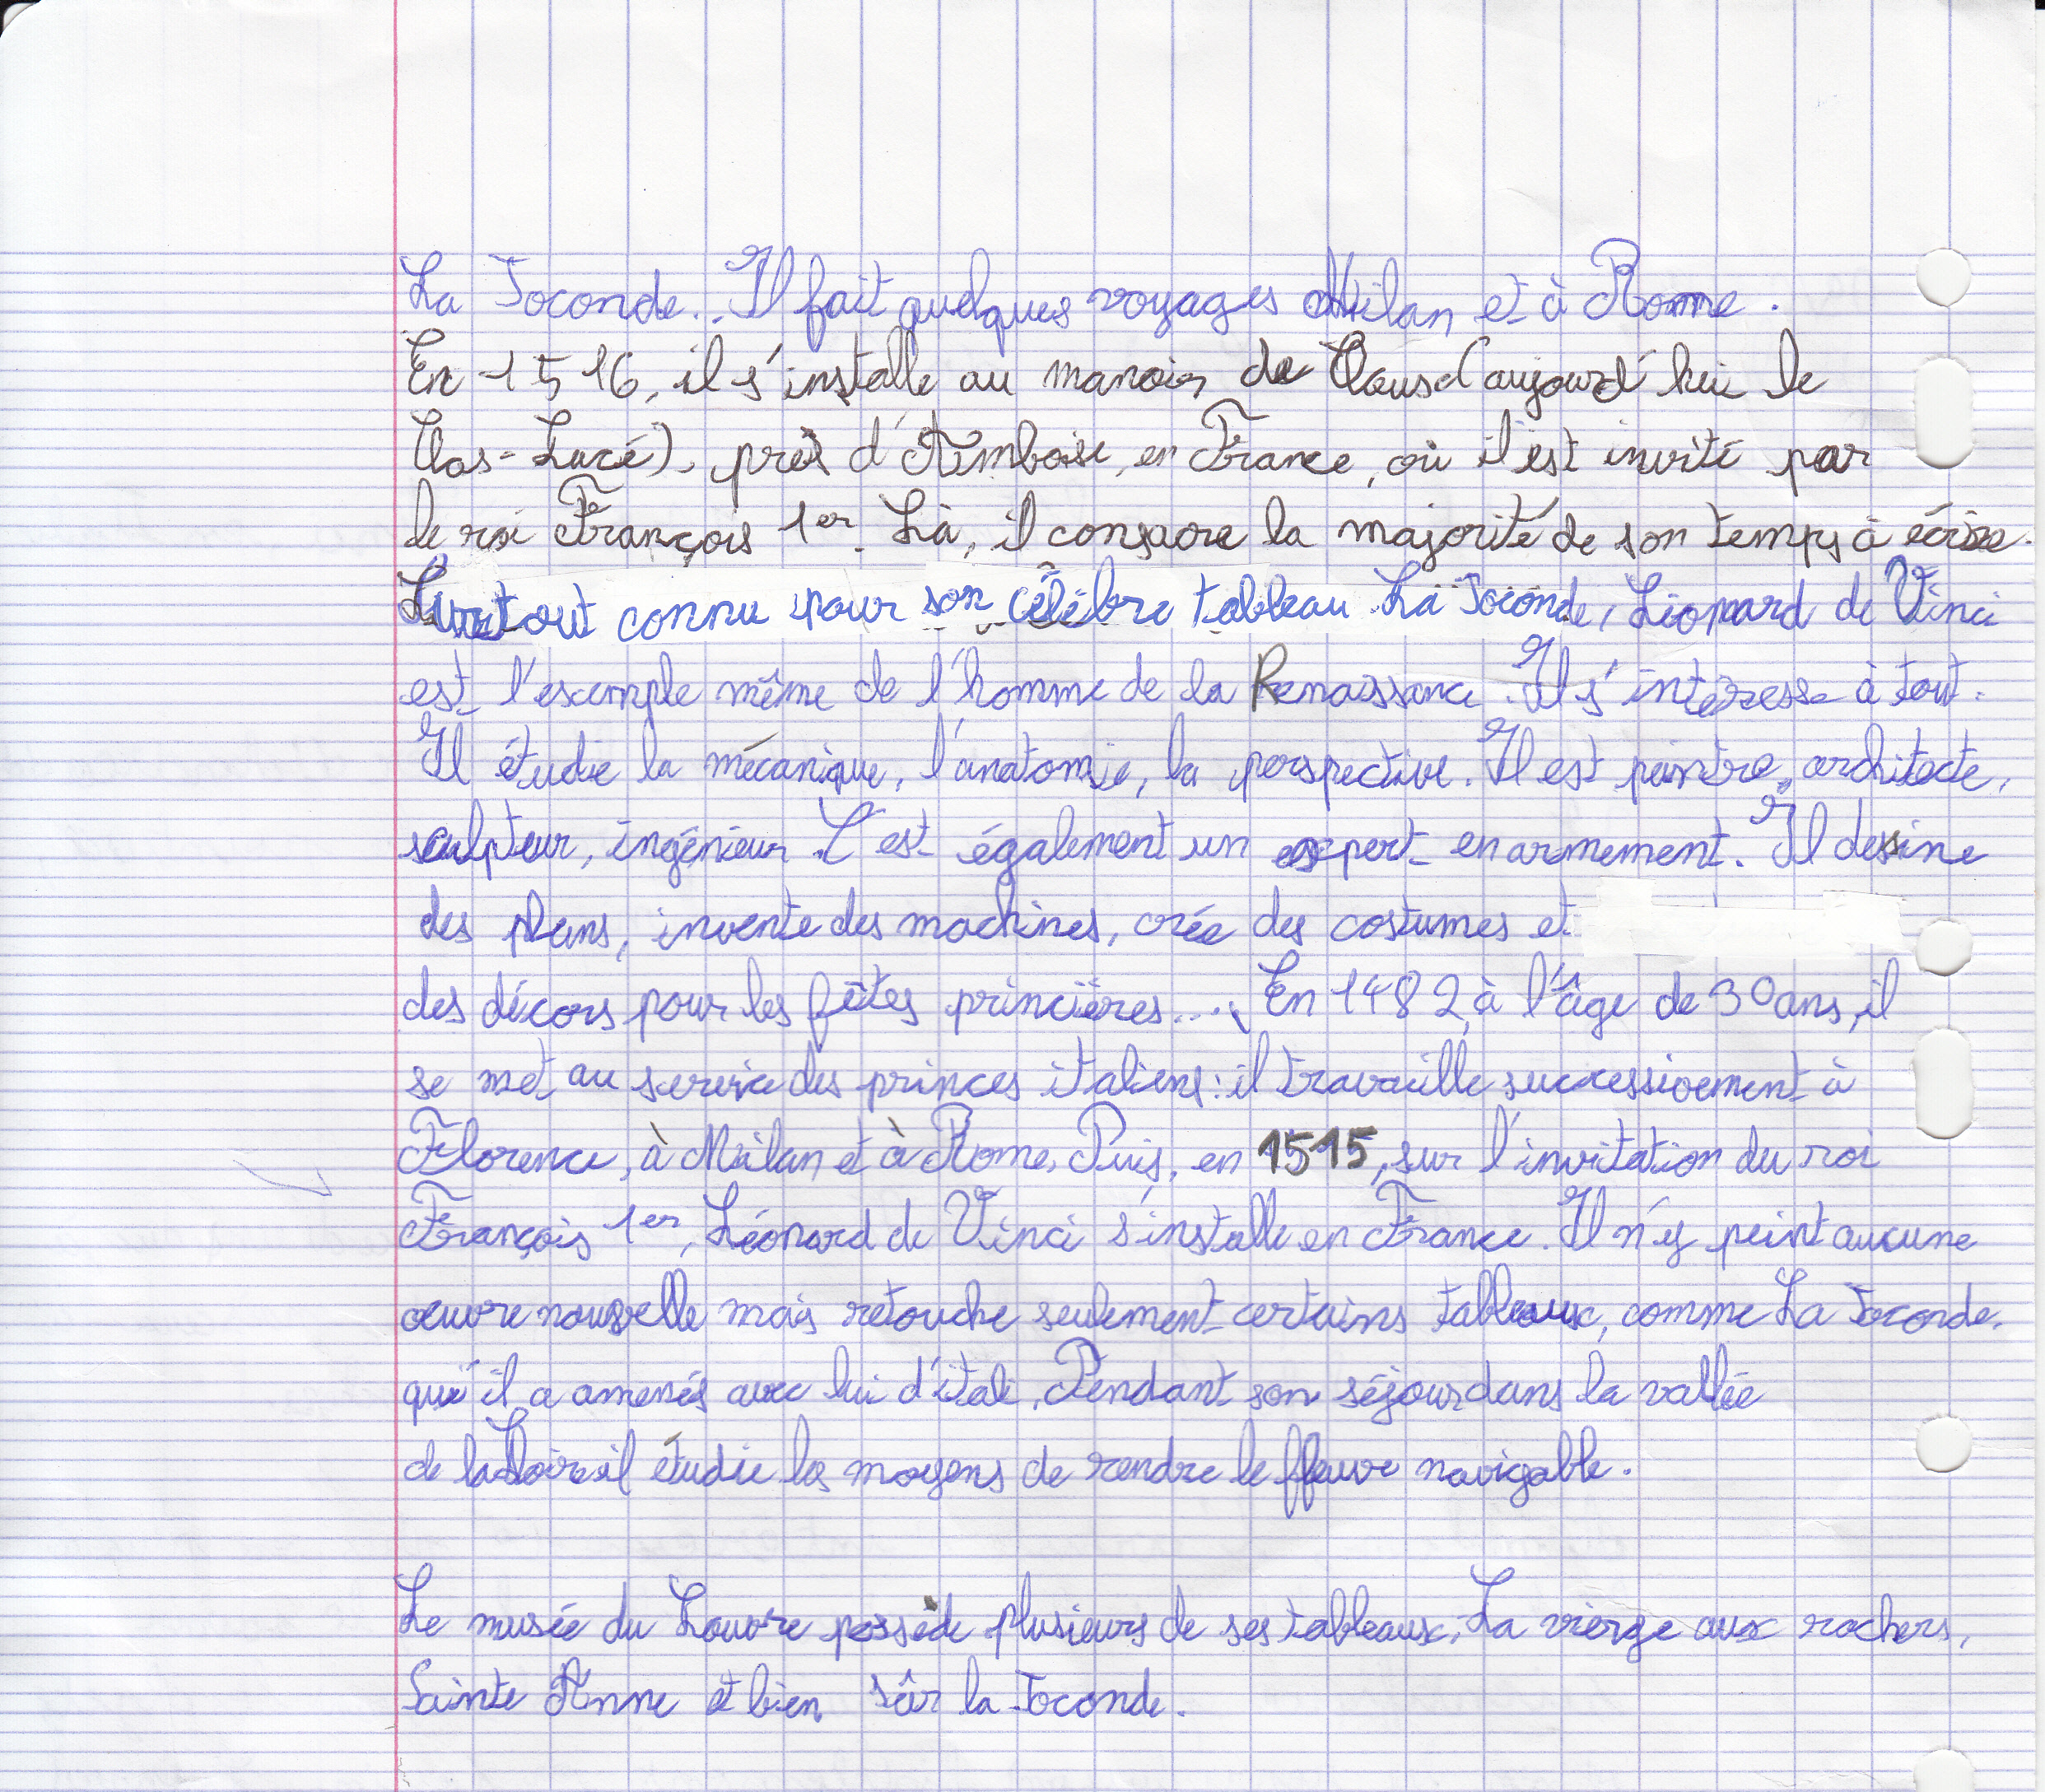 La Joconde.. Il fait quelques voyages Milan et à Rome.
En 1516, il s'installe au manoir de Cloux (aujourd'hui le
Clos-Lucé), près d'Amboise, en France, où il est invité par
le roi François 1er. Là, il consacre la majorité de son temps à écrire.
Surtout connu pour son célèbre tableau La Joconde, Léonard de Vinci
est l'exemple même de l'homme de la Renaissance. Il s'intéresse à tout.
Il étudie la mécanique, l'anatomie, la perspective. Il est peintre, architecte,
sculpteur, ingénieur. C'est également un expert en armement. Il dessine
des plans, invente des machines, crée des costumes et
des décors pour les fêtes princières... En 1482, à l'âge de 30 ans, il
se met au service des princes italiens : il travaille successivement à
Florence, à Milan et à Rome. Puis, en 1515, sur l'invitation du roi
François 1er, Léonard de Vinci s'installe en France. Il n'y peint aucune
œuvre nouvelle mais retouche seulement certains tableaux, comme La Joconde,
qu'il a amenés avec lui d'itali. Pendant son séjour dans la vallée
de la Loire il étudie les moyens de rendre le fleuve navigable.
Le musée du Louvre possède plusieurs de ses tableaux, La vierge aux rochers,
Sainte Anne et bien sûr la Joconde.